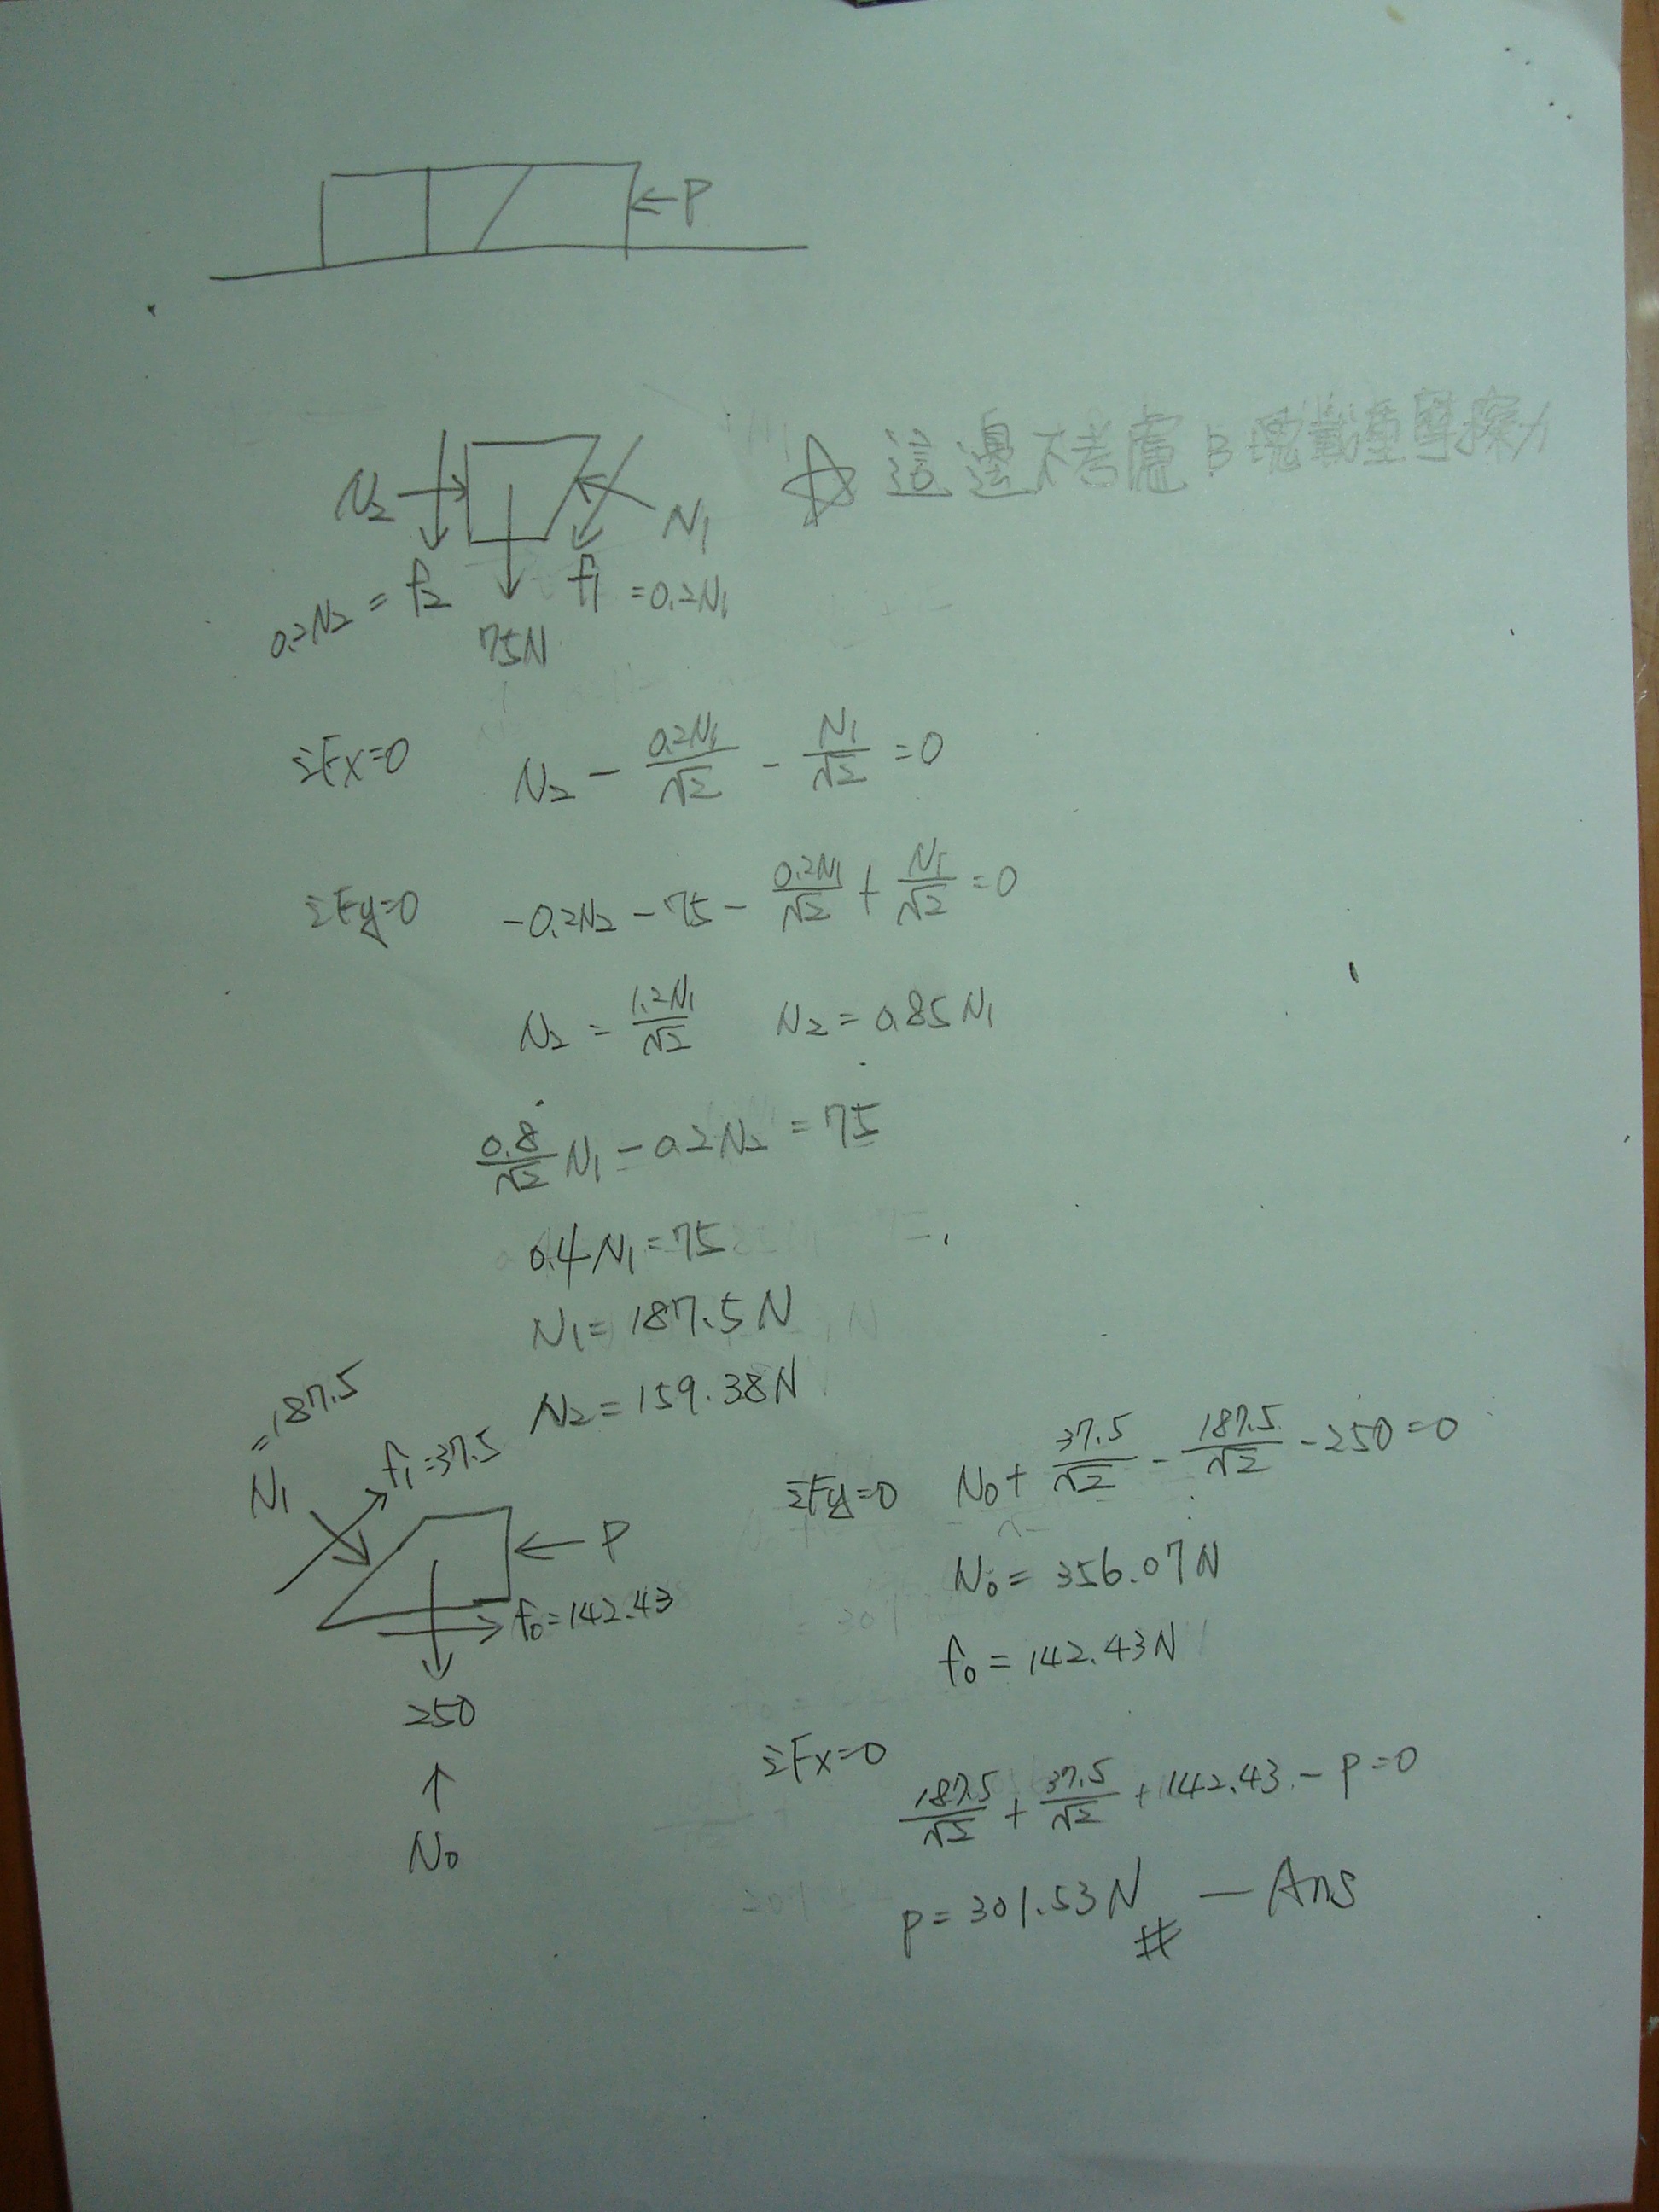 ←P
☆ 這邊不考慮B塊載重摩擦力
N₂
N₁
0.2N₂ = f₂
f₁ = 0.2N₁
75N
ΣFx=0 N₂ - 0.2N₁/√2 - N₁/√2 = 0
ΣFy=0 -0.2N₂ - 75 - 0.2N₁/√2 + N₁/√2 = 0
N₂ = 1.2N₁/√2 N₂ = 0.85N₁
0.8/√2 N₁ - 0.2N₂ = 75
0.4N₁ = 75
N₁ = 187.5N
N₂ = 159.38N
N₁ = 187.5
f₁ = 37.5
← P
f₀ = 142.43
250
↑
N₀
ΣFy=0 N₀ + 37.5/√2 - 187.5/√2 - 250 = 0
N₀ = 356.07N
f₀ = 142.43N
ΣFx=0 187.5/√2 + 37.5/√2 + 142.43 - P = 0
P = 301.53N # — Ans